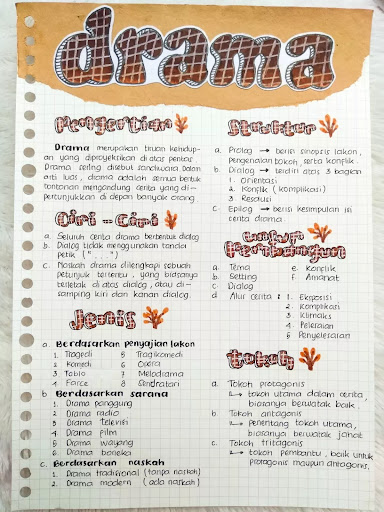 drama
Pengertian
Drama merupakan tiruan kehidup-
an yang diproyeksikan di atas pentas.
Drama sering disebut sandiwara. Dalam
arti luas, drama adalah semua bentuk
tontonan mengandung cerita yang di-
pertunjukkan di depan banyak orang.
Ciri - Ciri
a. Seluruh cerita drama berbentuk dialog
b. Dialog tidak menggunakan tanda
petik (" ... ")
c. Naskah drama dilengkapi sebuah
petunjuk tertentu, yang biasanya
terletak di atas dialog, atau di-
samping kiri dan kanan dialog.
Jenis
a. Berdasarkan penyajian lakon
1. Tragedi 5. Tragikomedi
2. Komedi 6. Opera
3. Tablo 7. Melodrama
4. Farce 8. Sendratari
b. Berdasarkan sarana
1. Drama panggung
2. Drama radio
3. Drama televisi
4. Drama film
5. Drama wayang
6. Drama boneka
c. Berdasarkan naskah
1. Drama tradisional (tanpa naskah)
2. Drama modern (ada naskah)
Struktur
a. Prolog → berisi sinopsis lakon,
pengenalan tokoh, serta konflik.
b. Dialog → terdiri atas 3 bagian
1. Orientasi
2. Konflik (komplikasi)
3. Resolusi
c. Epilog → berisi kesimpulan isi
cerita drama
Unsur
Pembangun
a. Tema e. Konflik
b. Setting f. Amanat
c. Dialog
d. Alur cerita : 1. Eksposisi
2. Komplikasi
3. Klimaks
4. Peleraian
5. Penyelesaian
tokoh
a. Tokoh protagonis
↳ tokoh utama dalam cerita,
biasanya berwatak baik
b. Tokoh antagonis
↳ Penentang tokoh utama,
biasanya berwatak jahat
c. Tokoh tritagonis
↳ tokoh pembantu, baik untuk
protagonis maupun antagonis.